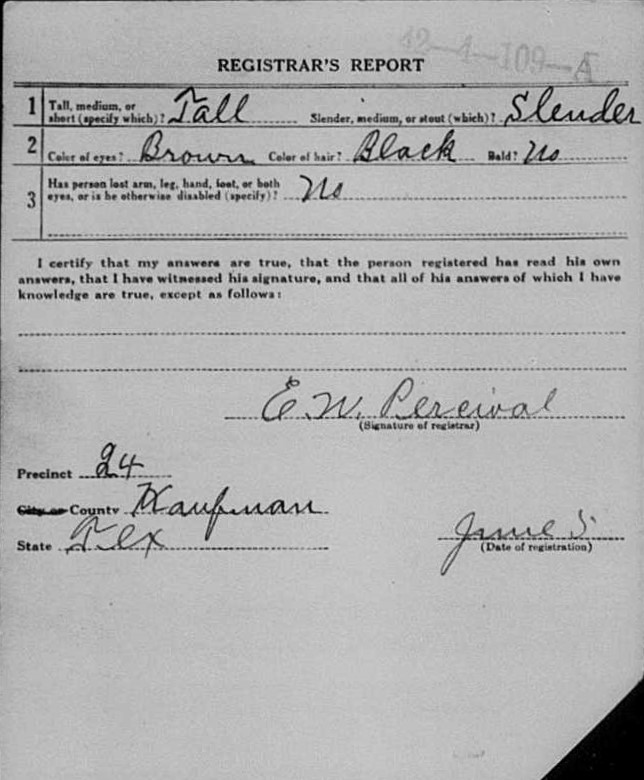 42-4-109-A
REGISTRAR'S REPORT
1 Tall, medium, or short (specify which)? Tall Slender, medium, or stout (which)? Slender
2 Color of eyes? Brown Color of hair? Black Bald? No
3 Has person lost arm, leg, hand, foot, or both
eyes, or is he otherwise disabled (specify)? No
I certify that my answers are true, that the person registered has read his own
answers, that I have witnessed his signature, and that all of his answers of which I have
knowledge are true, except as follows:
E. W. Percival
(Signature of registrar)
Precinct 24
City or County Kaufman
State Tex
June 5
(Date of registration)